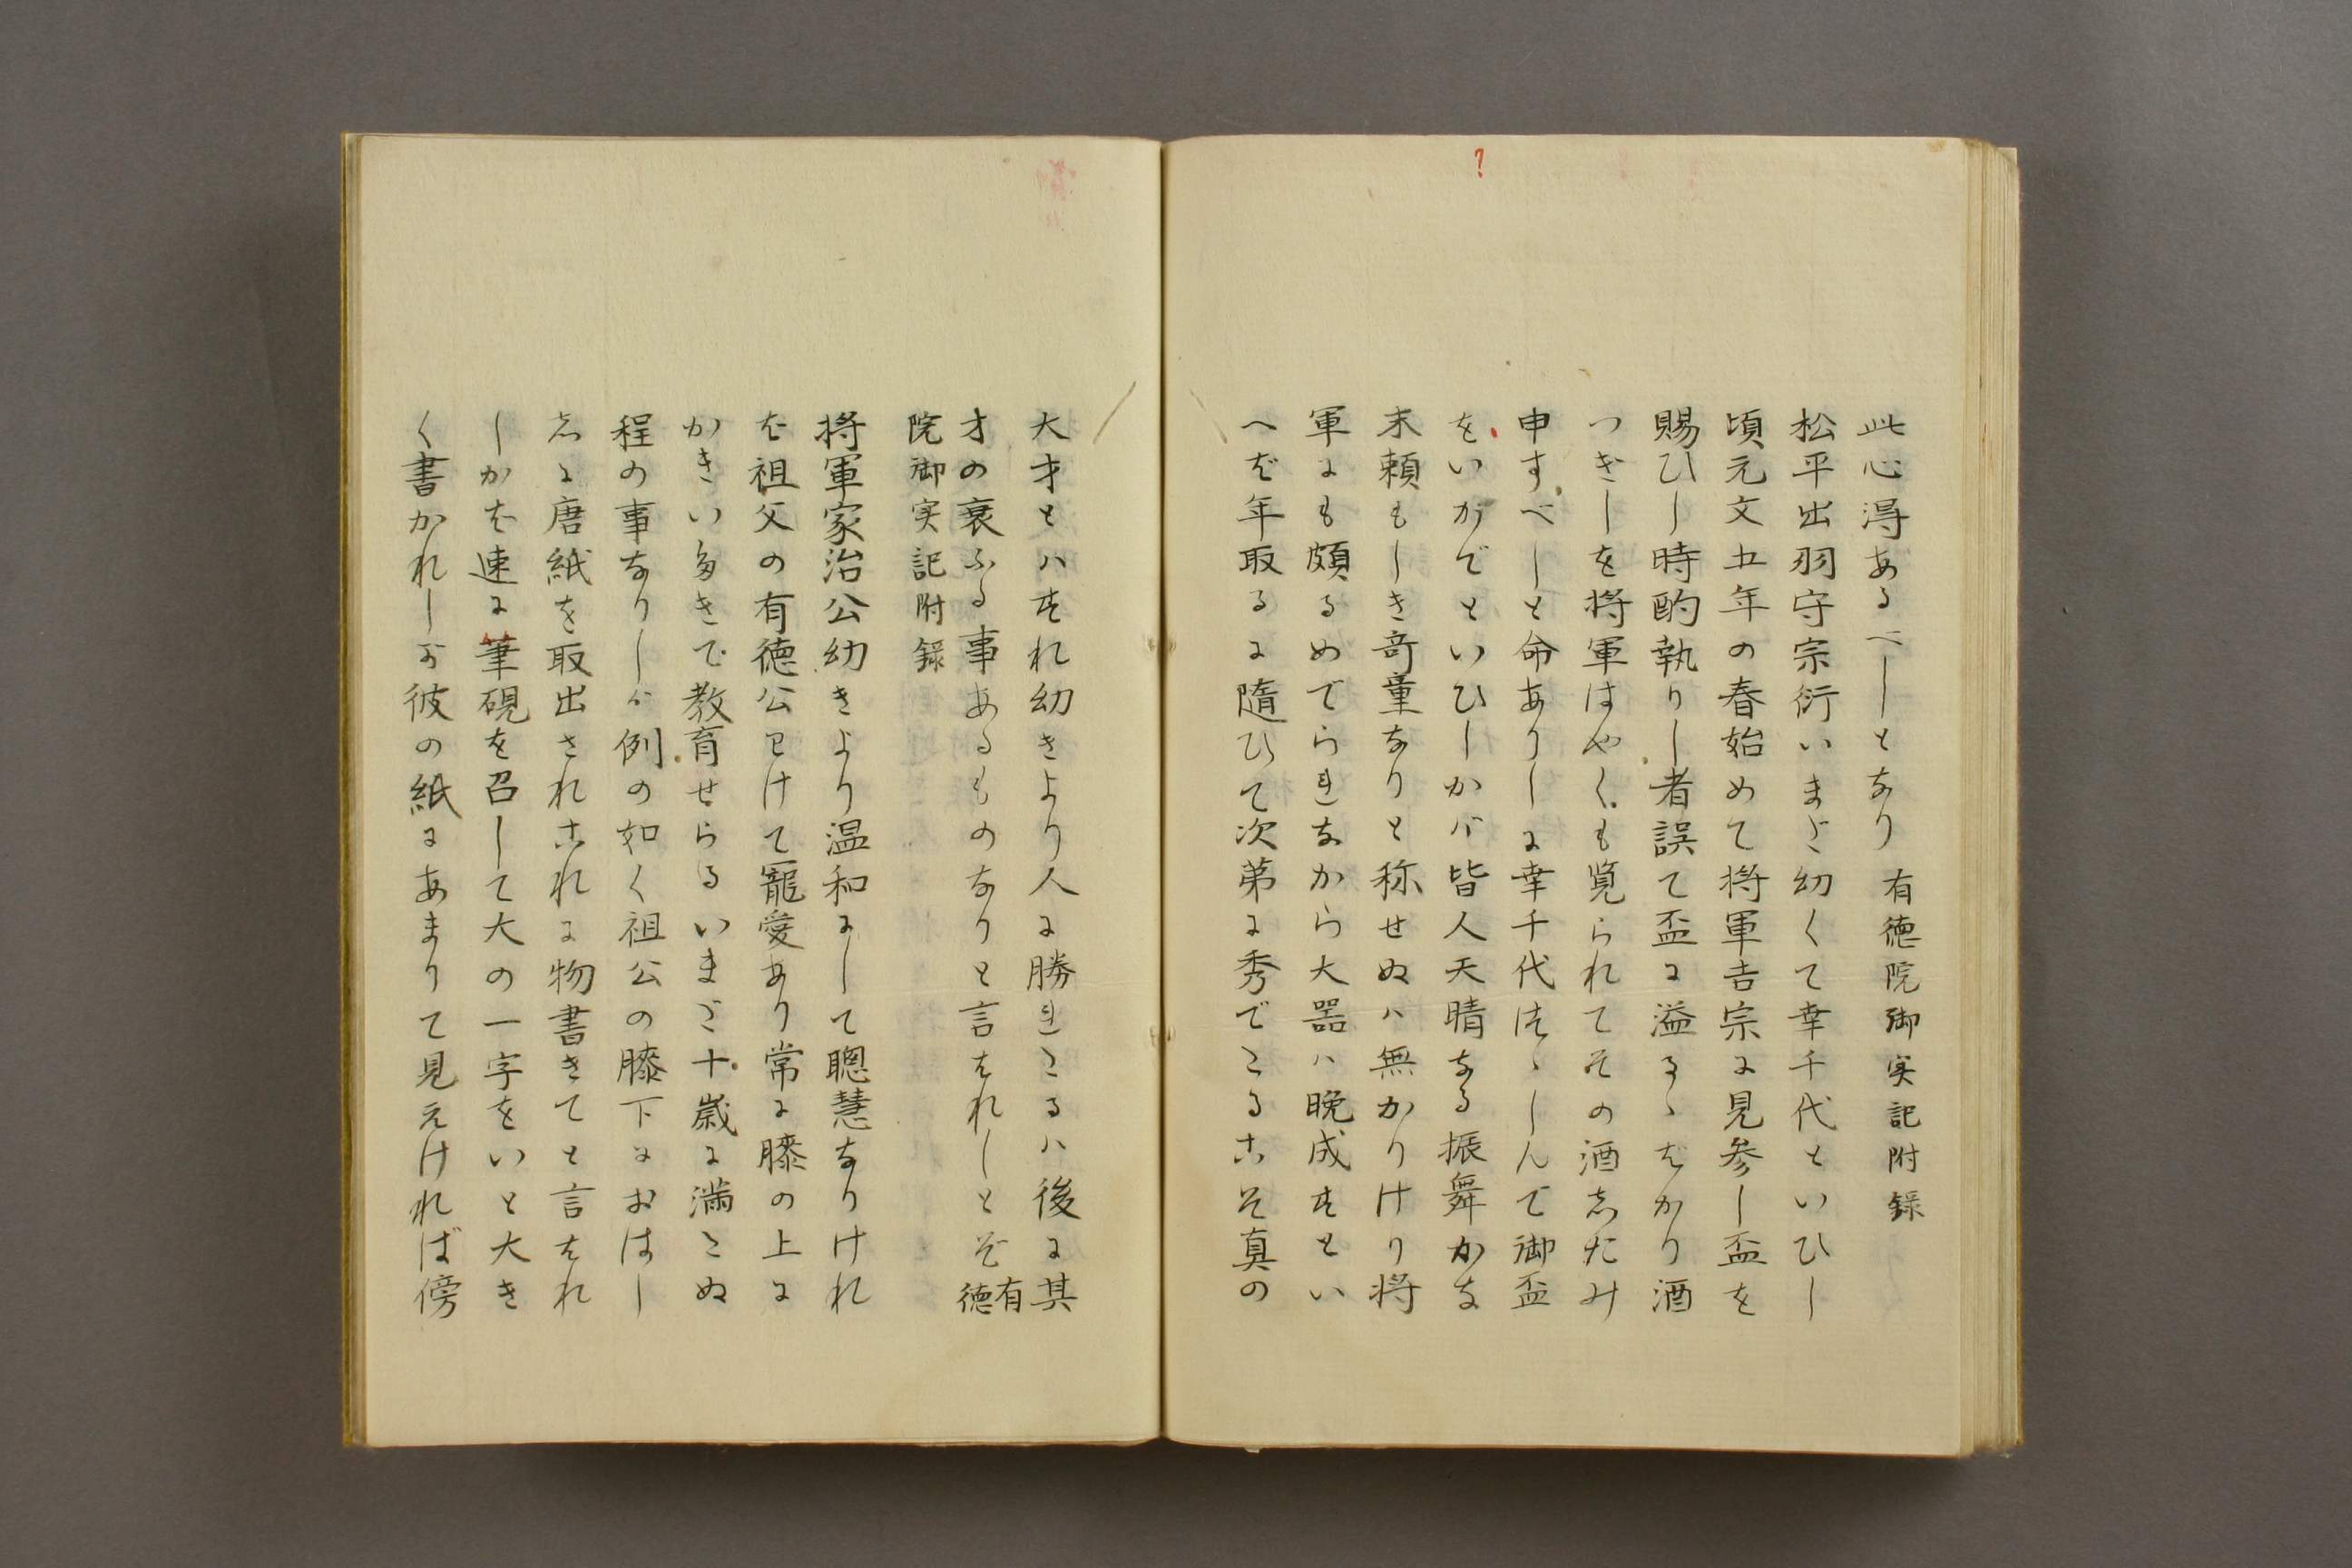 ?
此心得あるべしとなり 有徳院御実記附録
松平出羽守宗衍いまだ幼くて幸千代といひし
頃元文五年の春始めて将軍吉宗に見参し盃を
賜ひし時酌執りし者誤て盃に溢るゝばかり酒
つぎしを将軍はやくも覧られてその酒したみ
申すべしと命ありしに幸千代はゝしんで御盃
をいかでといひしかバ皆人天晴なる振舞かな
末頼もしき奇童なりと称せぬハ無かりけり将
軍にも頗るめでられなから大器ハ晩成すとい
へば年取るに随ひて次第に秀でたるこそ真の
大才とハすれ幼きより人に勝れたるハ後に其
才の衰ふる事あるものなりと言はれしとぞ 有徳
院御実記附録
将軍家治公幼きより温和にして聰慧なりけれ
ば祖父の有徳公わけて寵愛あり常に膝の上に
かきいだきで教育せらるいまだ十歳に満たぬ
程の事なりしが例の如く祖公の膝下におはし
しに唐紙を取出されこれに物書きてと言はれ
しかば速に筆硯を召して大の一字をいと大き
く書かれしが彼の紙にあまりて見えければ傍